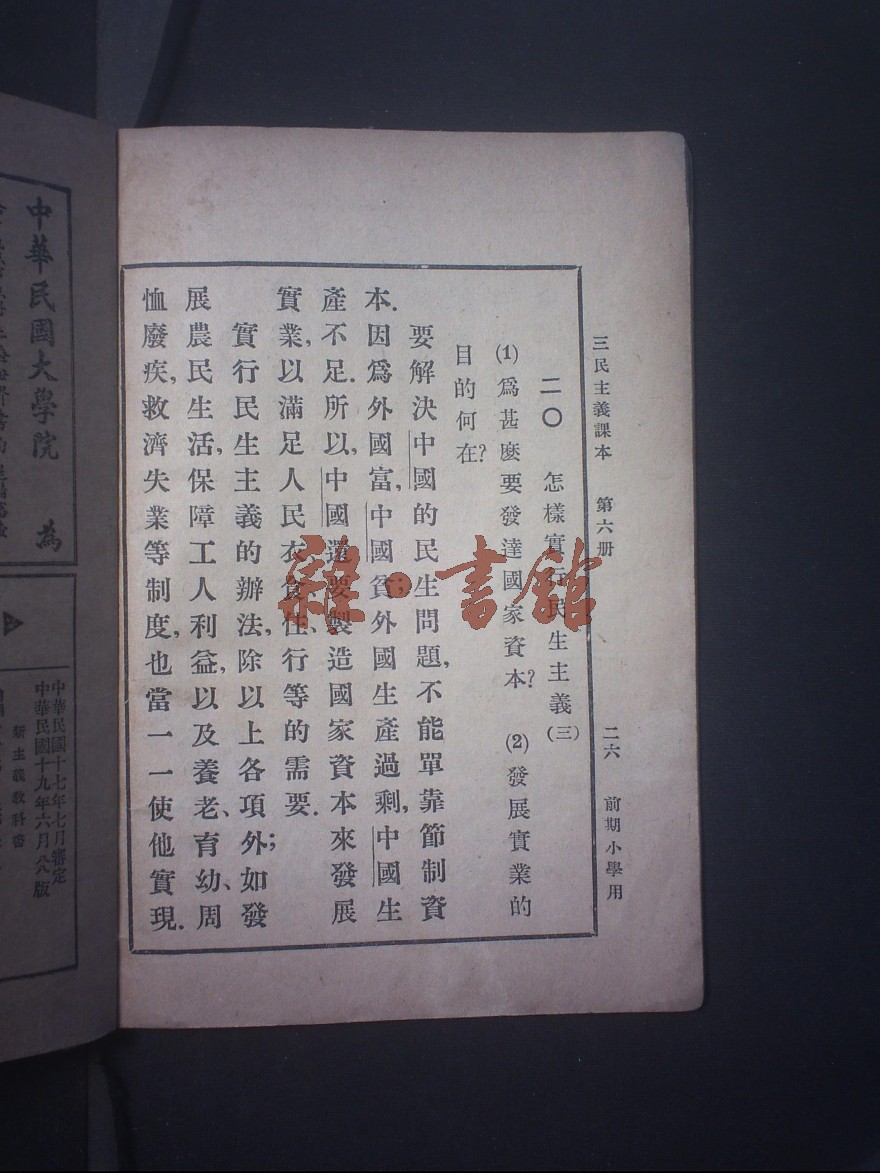 三民主義課本 第六册 二六 前期小學用
二〇 怎樣實行民生主義(三)
(1)爲甚麽要發達國家資本?(2)發展實業的
目的何在?
要解決中國的民生問題,不能單靠節制資
本.因爲外國富,中國貧;外國生產過剩,中國生
產不足.所以,中國還要製造國家資本來發展
實業,以滿足人民衣、食、住、行等的需要.
實行民生主義的辦法,除以上各項外;如發
展農民生活,保障工人利益,以及養老、育幼、周
恤廢疾,救濟失業等制度,也當一一使他實現.
雜·書館
中華民國大學院 為
中華民國十七年七月審定
中華民國十九年六月八版
新主義教科書